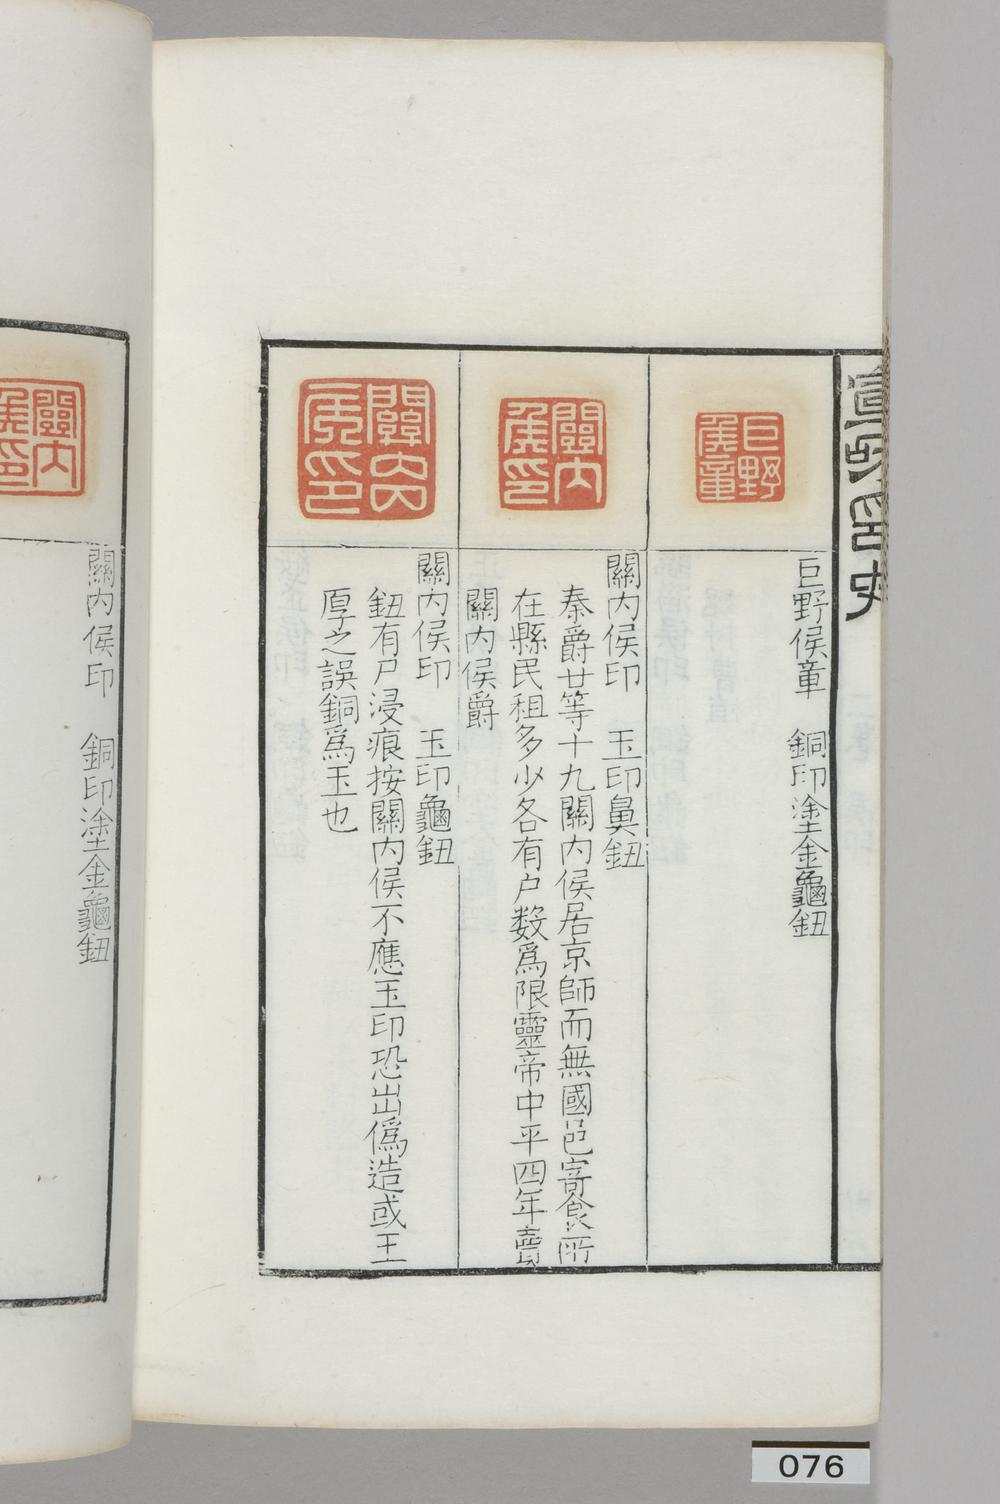 巨野侯章
巨野侯章　銅印塗金龜鈕
關內侯印
關內侯印　玉印鼻鈕
秦爵廿等十九關內侯居京師而無國邑寄食所
在縣民租多少各有户数爲限靈帝中平四年賣
關內侯爵
關內侯印
關內侯印　玉印龜鈕
鈕有尸浸痕按關內侯不應玉印恐出僞造或王
厚之誤銅爲玉也
關內侯印
關內侯印　銅印塗金龜鈕
076